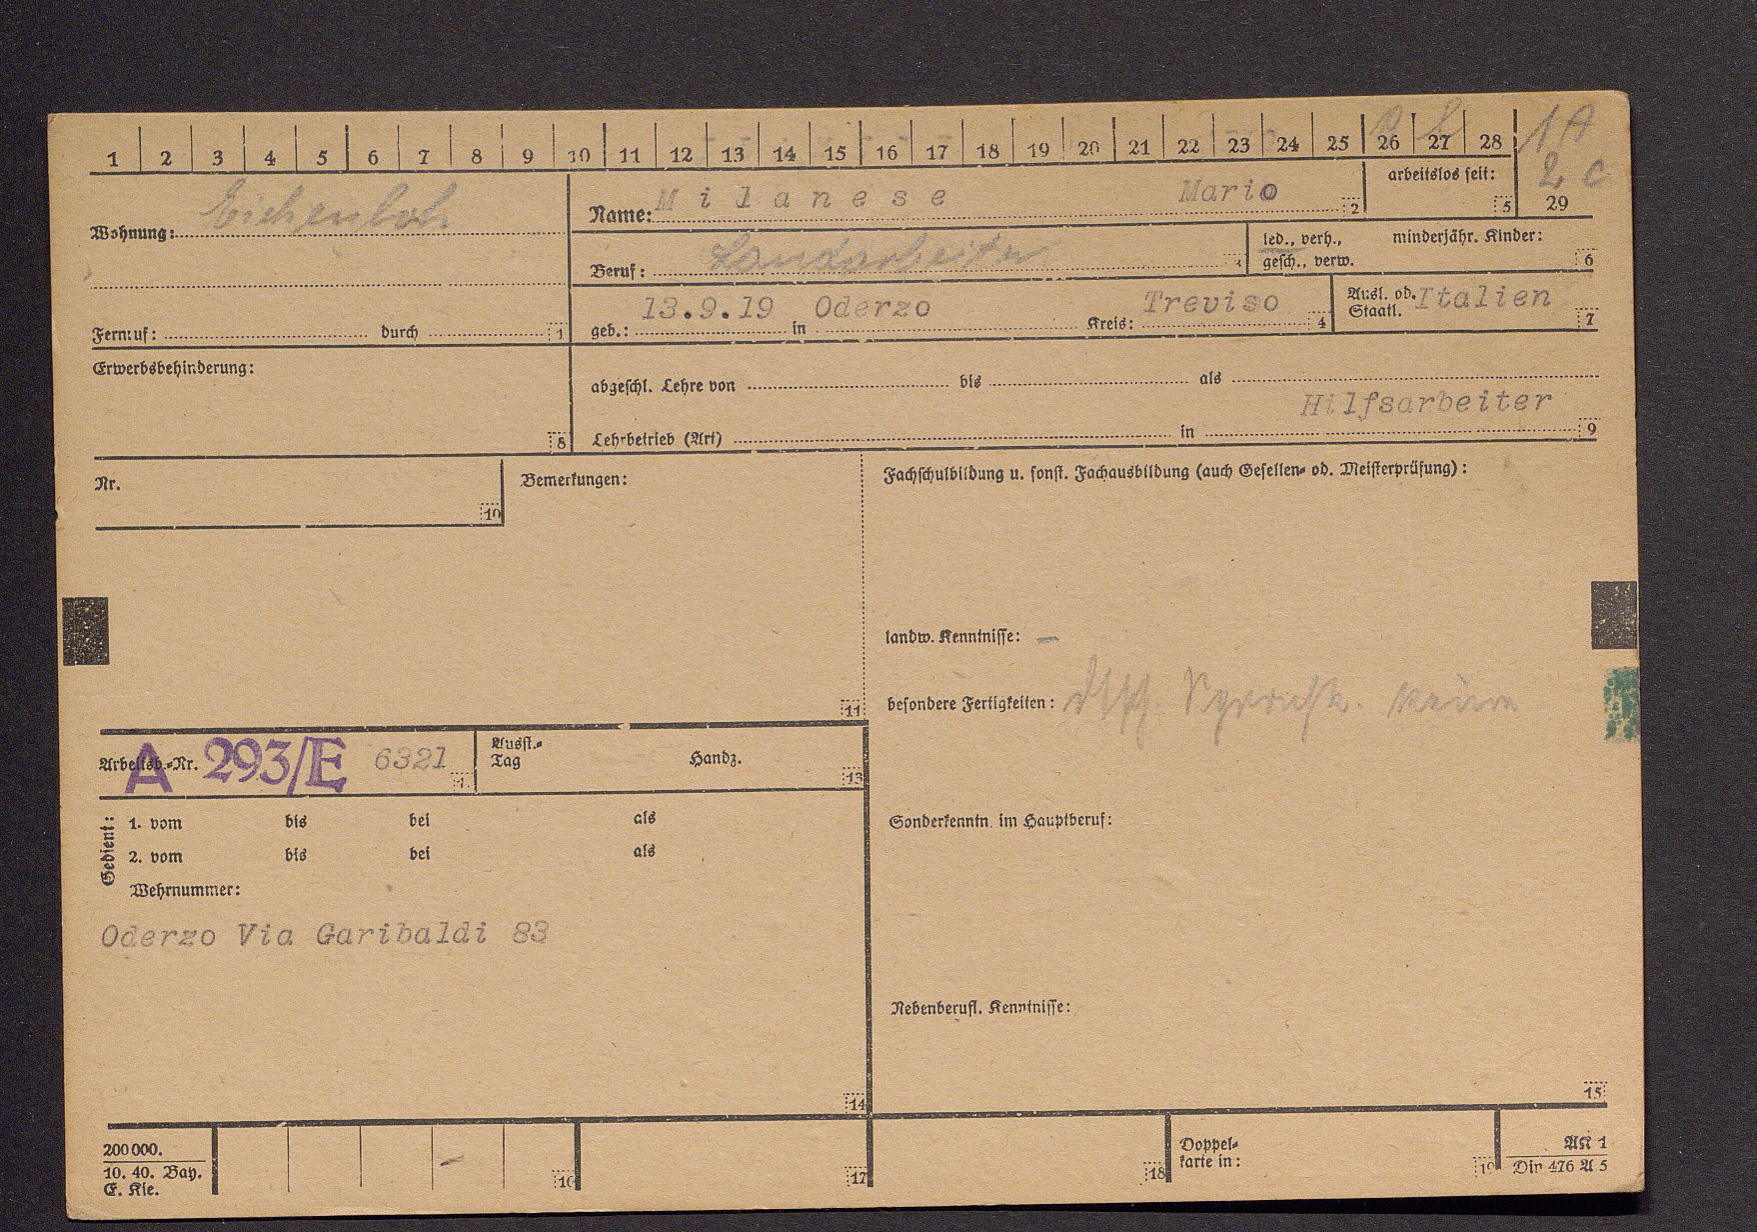 1 2 3 4 5 6 7 8 9 10 11 12 13 14 15 16 17 18 19 20 21 22 23 24 25 26 27 28 1A
2 c
29
Wohnung: Eichenloh
Name: Milanese Mario 2
arbeitslos seit: 5
Beruf: Landarbeiter
led., verh., minderjähr. Kinder:
gesch., verw. 6
Fernruf: durch 1
geb.: 13.9.19 in Oderzo Kreis: Treviso 4
Ausl. od. Italien
Staatl. 7
Erwerbsbehinderung: 8
abgeschl. Lehre von bis als
Hilfsarbeiter
Lehrbetrieb (Art) in 9
Nr. 10
Bemerkungen: 11
Fachschulbildung u. sonst. Fachausbildung (auch Gesellen- od. Meisterprüfung):
landw. Kenntnisse: —
besondere Fertigkeiten: dtsch. Sprachk. keine
Arbeitsb.-Nr. A 293/E 6321
Ausst.-
Tag Handz. 13
Gedient: 1. vom bis bei als
2. vom bis bei als
Wehrnummer:
Oderzo Via Garibaldi 83
14
Sonderkenntn. im Hauptberuf:
Nebenberufl. Kenntnisse:
15
200 000.
10. 40. Bay.
E. Kie.
16 17 18
Doppel-
karte in: 19
AK 1
Din 476 A 5